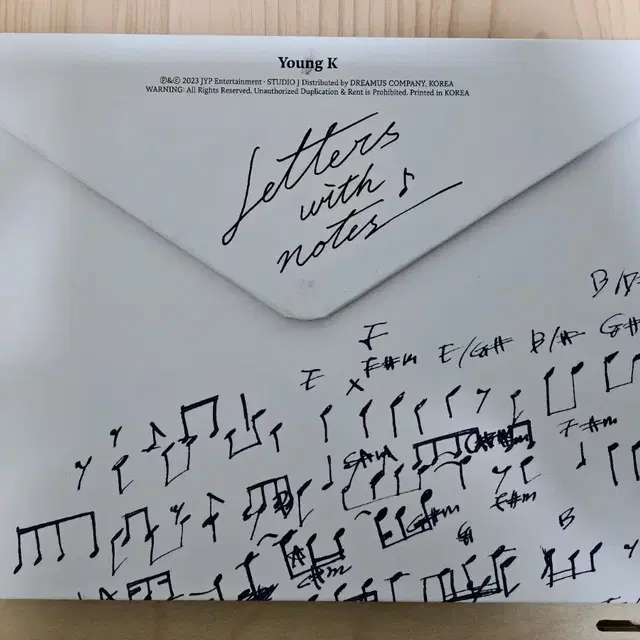 Young K
℗&© 2023 JYP Entertainment · STUDIO J Distributed by DREAMUS COMPANY, KOREA
WARNING: All Rights Reserved. Unauthorized Duplication & Rent is Prohibited. Printed in KOREA
Letters
with ♪
notes
F
E F#m E/G# B/# G#
F#m
G#m
F#m
B
A
C#m